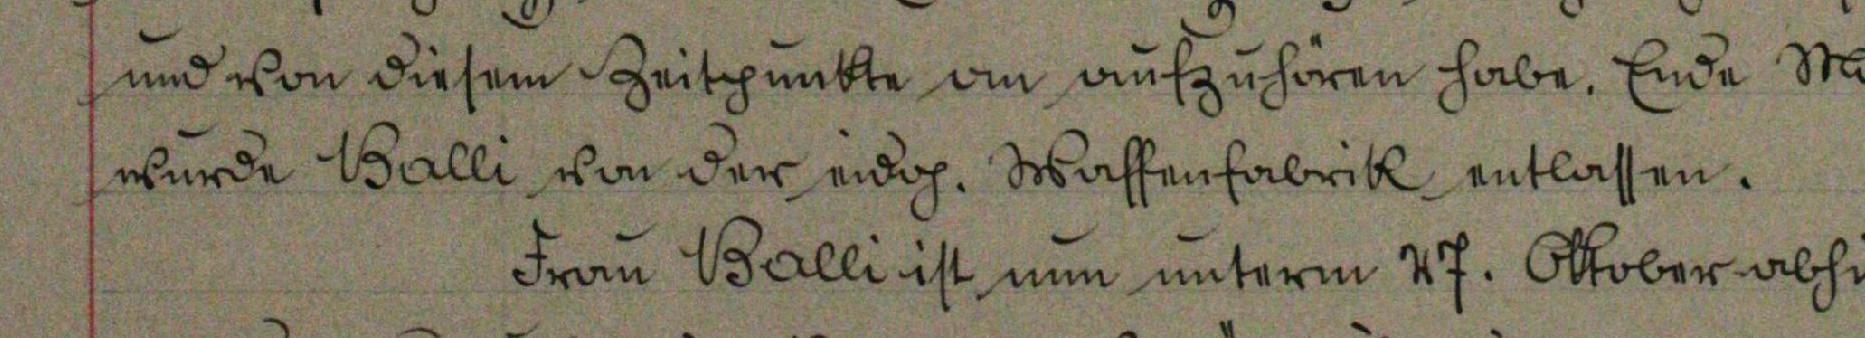 und von diesem Zeitpunkte an aufzuhören habe. Ende
wurde Balli von der eidg. Waffenfabrik entlassen.
Frau Balli ist nun unterm 27. Oktober